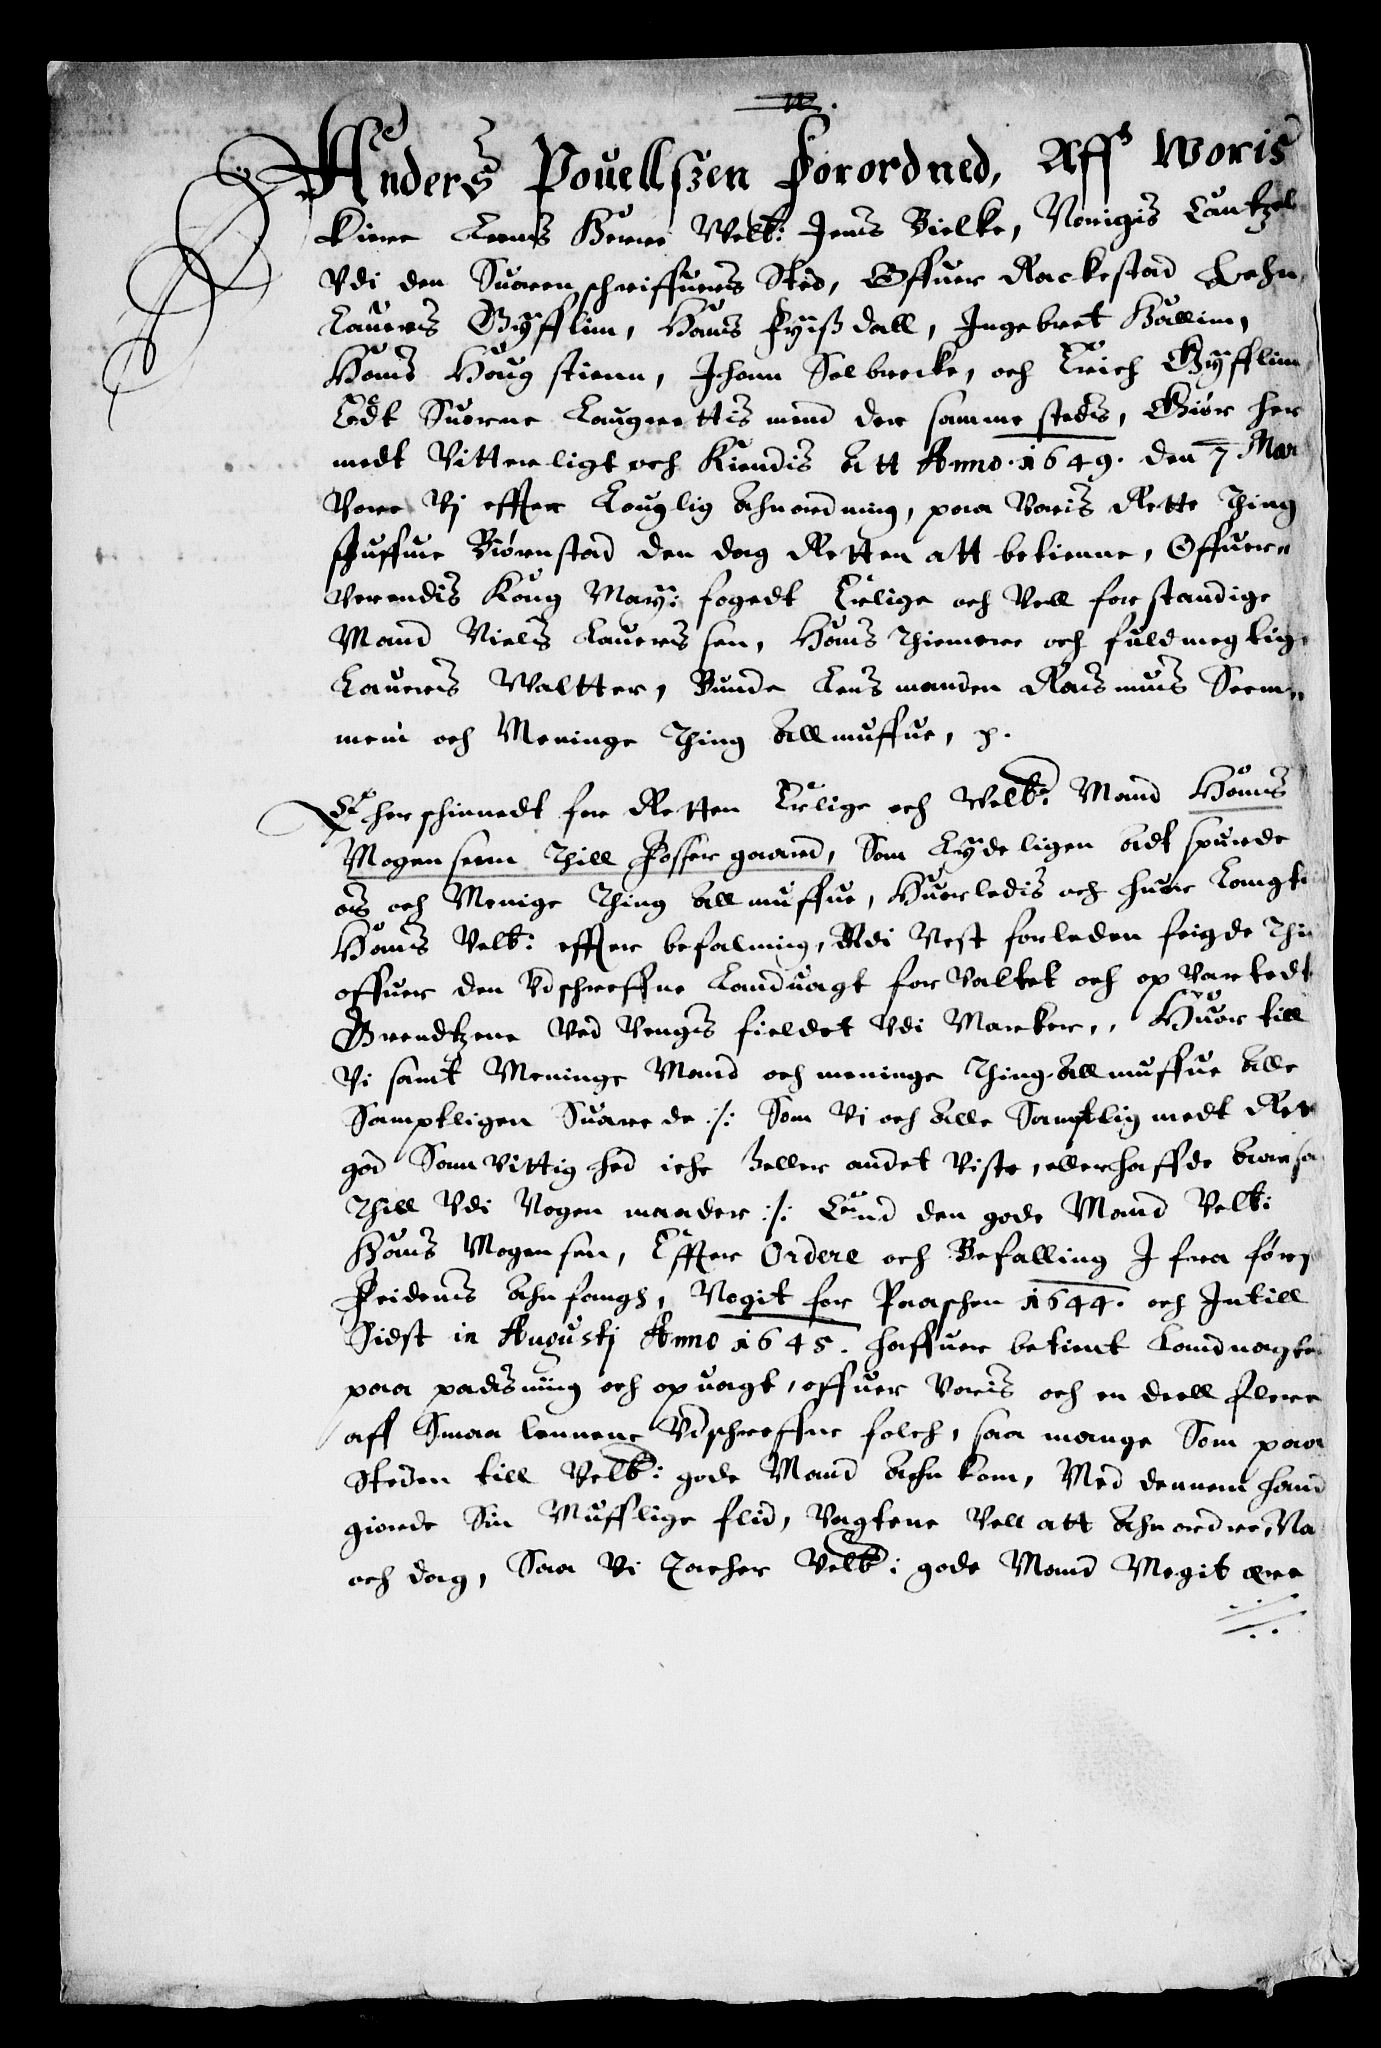 Anders Pouellszen Forordned, Aff Woris
kiere Lens Herre Welb: Jens Bielke, Norigis Cantzel
Vdi den Suoren schriffuers Sted, Offuer Rackestad Lehn,
Lauers Gyfflim, Hans Fyißdall, Ingebret Hallim,
Hans Hougstienn, Johann Solbrecke, och Erich Gyfflim
Edt Suorne Laugrettis mend der samme stedis, Giør her
medt Vitterligt och Kiendis Att Anno 1649. den 7 Mar
Vore Vj effter Louglig Ahnordning, paa Voris Rette Thing
stuffue Biørnstad den dag Retten att betienne, Offuer
verendis Kong May: fogedt Erlige och Vell forstandige
Mand Niels Lauerssen, Hans Thiennere och fuldmegtig
Lauers Waltter, Bunde Lensmanden Rasmus Seem
mem och Meninge Thing Allmuffue, p.
Er her schinnedt for Retten Erlige och Welb: Mand Hans
Mogenseen Thill Fosser gaard, Som Lydeligen Adt spurde
os och Menige Thing Allmuffue, Huorledis och huor Langt
Hans Velb: effter befalning, Vdi Nest forleden feigde Thi
offuer den Vdschreffne Landuagt for Valtet och op Vartedt
Grendtzene Ved Vengis fieldet Vdi Marker,, Huor till
Vi samt Meninge Mand och meninge Thing Allmuffue Alle
Samptligen Suarede :/: Som Vi och Alle Samptlig medt Ret
god Samvittighed iche heller andet Viste, eller haffde
Thill Vdi Nogen maader :/: End den gode Mand Velb:
Hans Mogensen, Effter Ordere och Befalling J fra først
Feidens Ahnfangh, Nogit for Paaschen 1644. och Intill
Sidst in Augustj Anno 1645. haffuer betient Landuagten
paa padisning och opuagt, offuer Voris och en deell flere
aff Smaa lennene Vdschreffne folch, saa mange Som paa
Steden till Velb: gode Mand Ahnkom, Med dennem hand
giorde Sin Mufflige flid, Vagtene Vell att Ahnordre, Na
och dag, Saa Vi Tacher Velb: gode Mand Megit ære